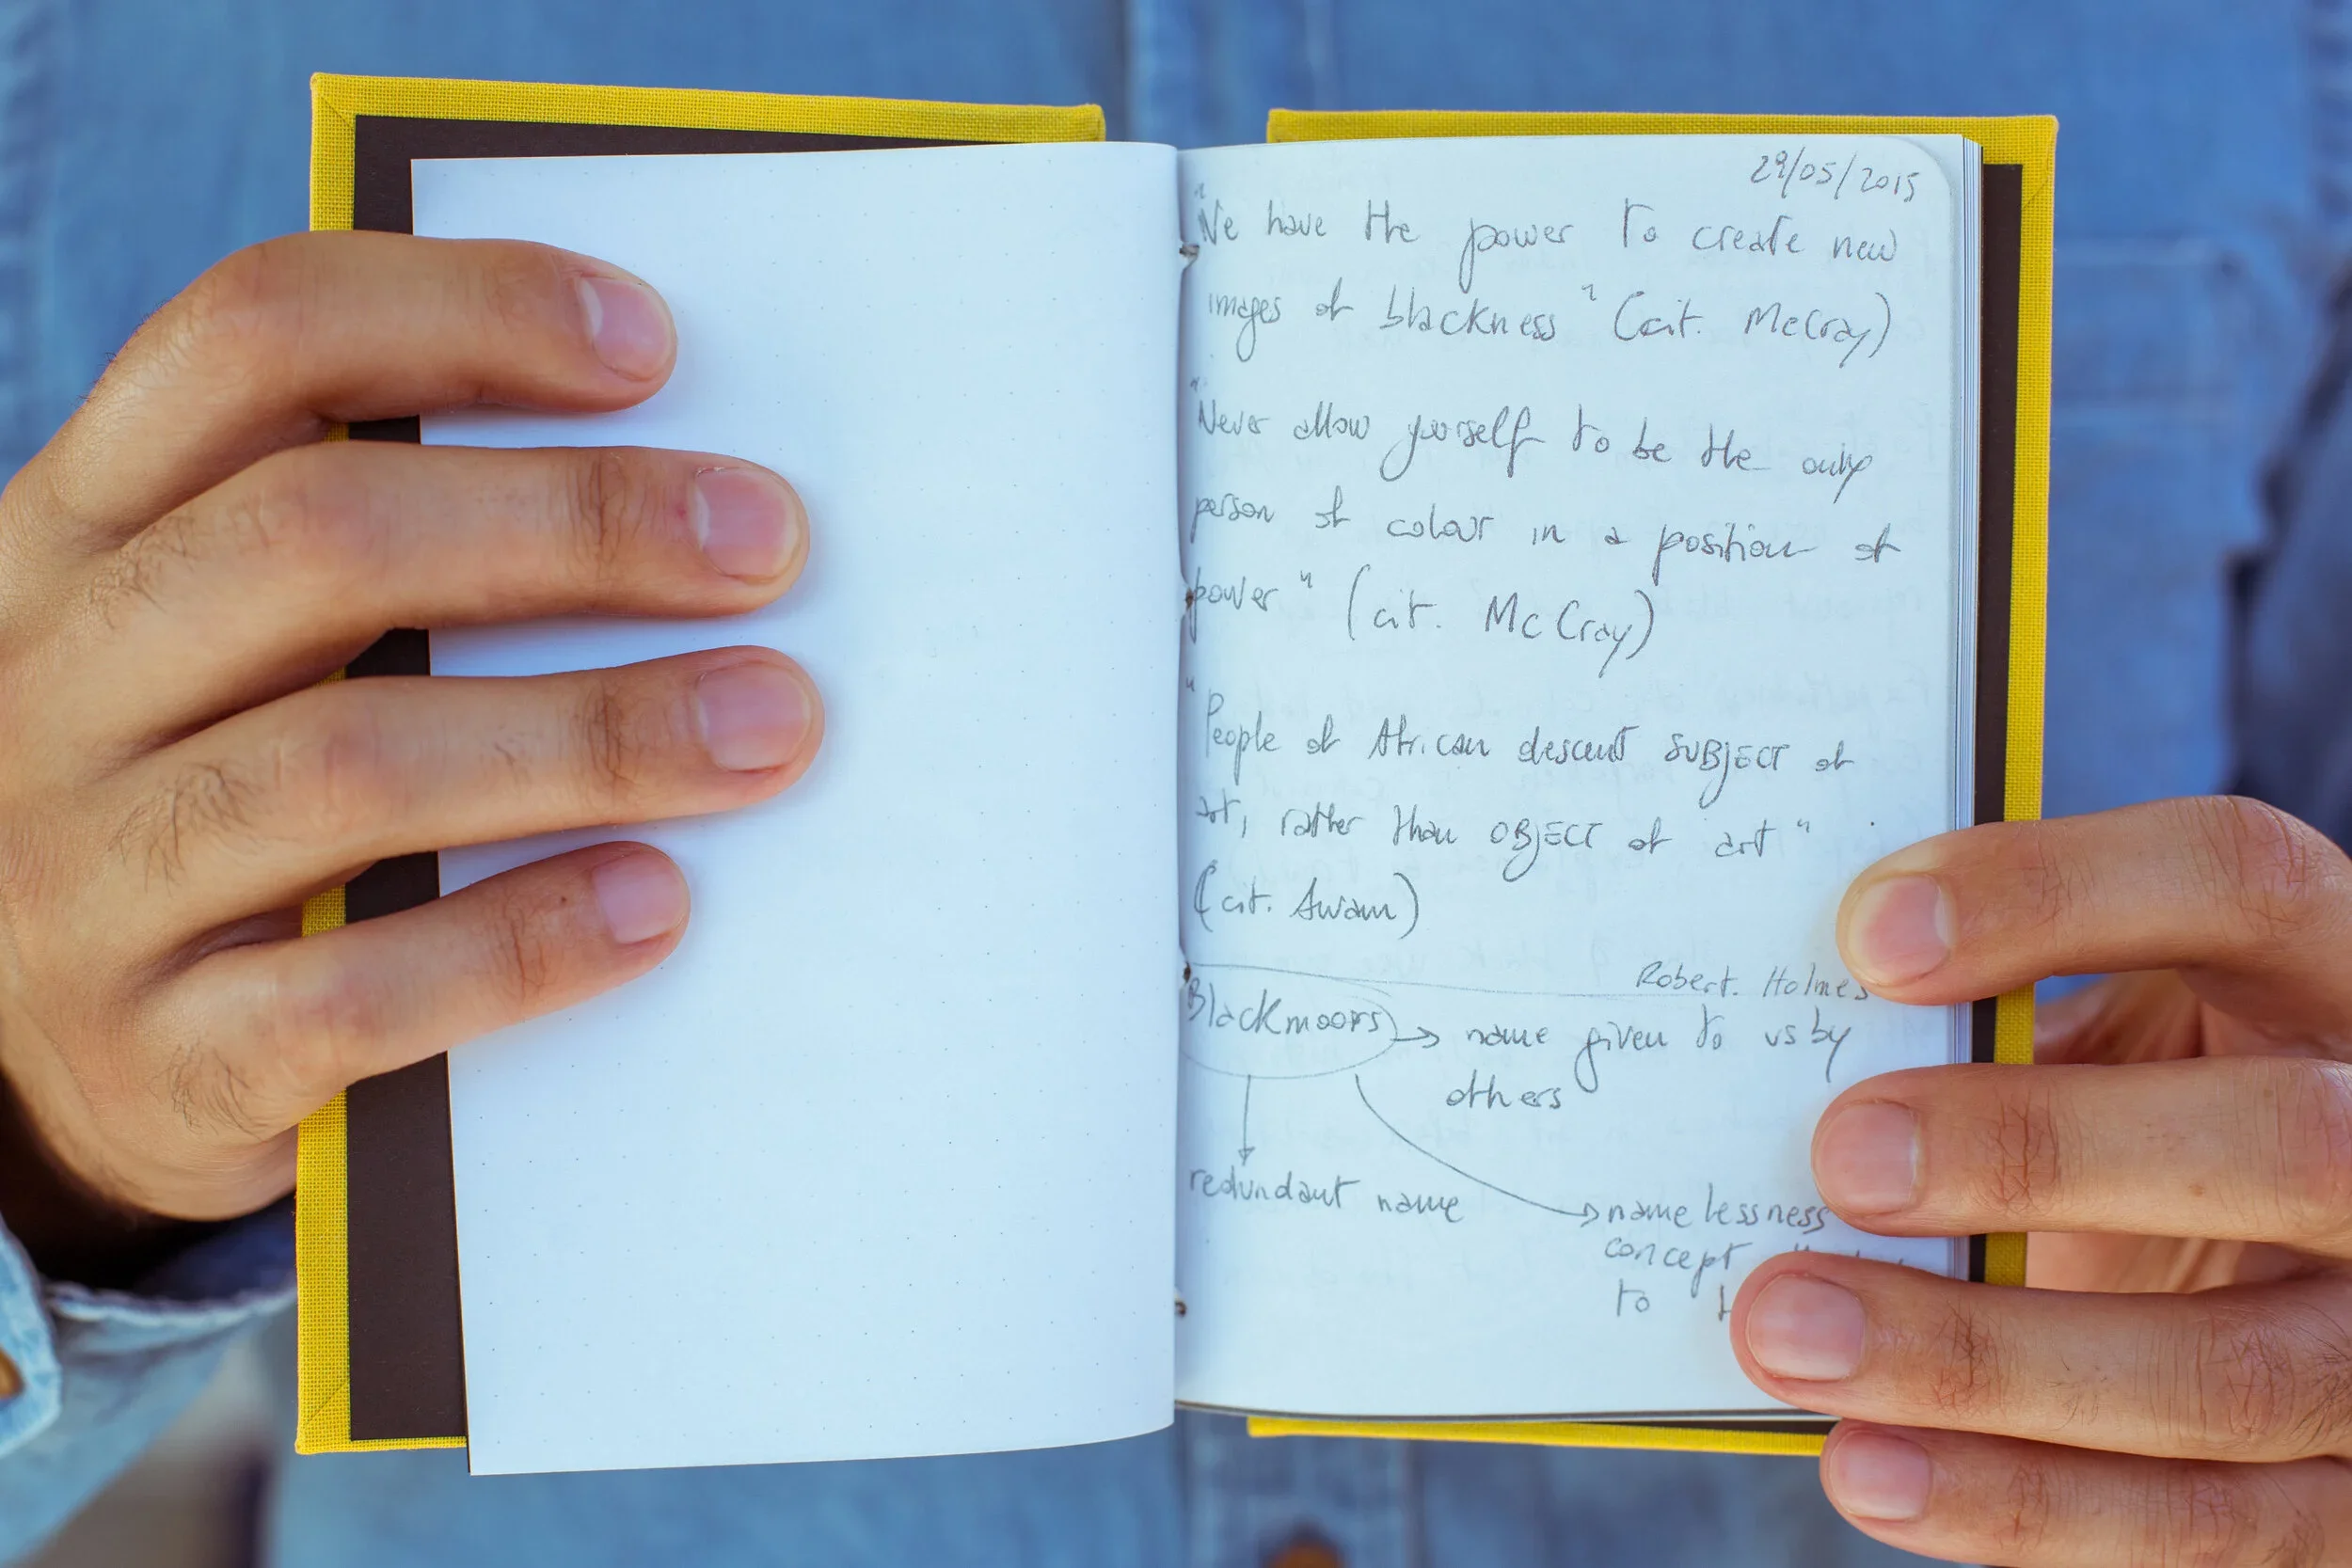 29/05/2015
"We have the power to create new
images of blackness" (cit. McCray)
"Never allow yourself to be the only
person of colour in a position of
power" (cit. McCray)
"People of African descent SUBJECT of
art, rather than OBJECT of art"
(cit. Awam)
Robert. Holmes
Blackmoors → name given to us by
others
redundant name
→ namelessness
concept
to